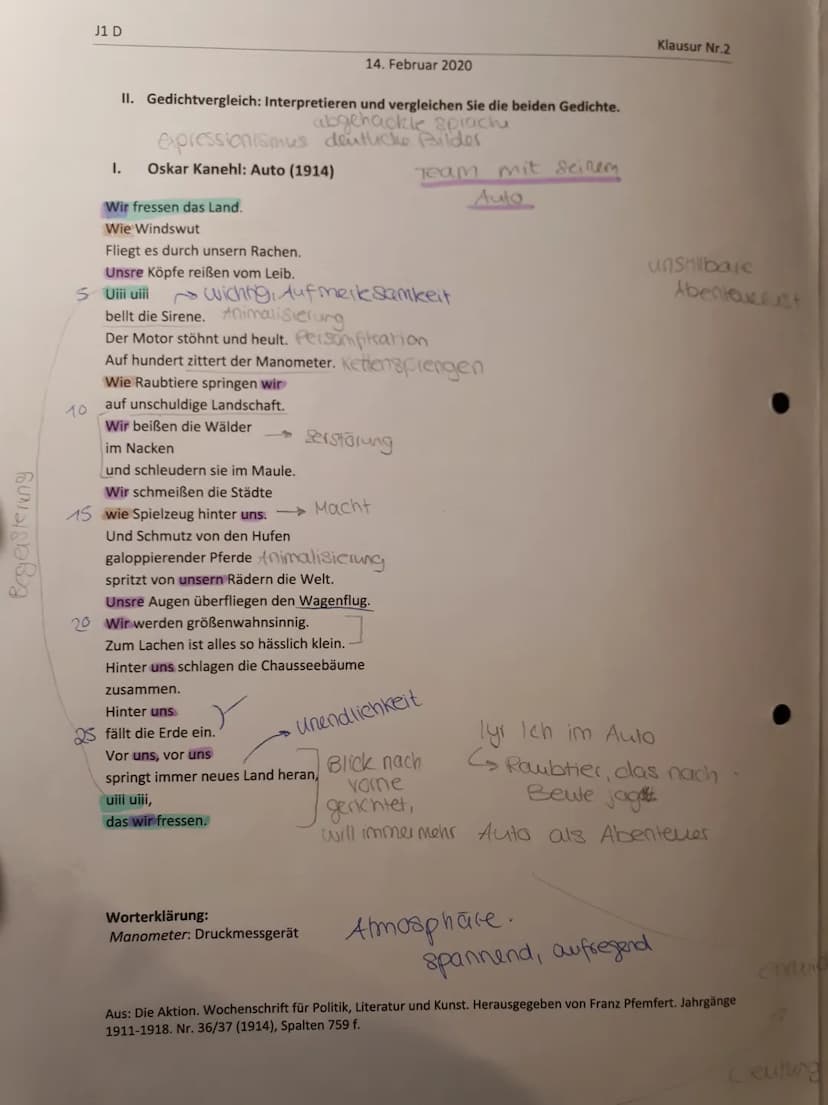 J1 D
Klausur Nr.2
14. Februar 2020
II. Gedichtvergleich: Interpretieren und vergleichen Sie die beiden Gedichte.
abgehackte Sprache
Expressionismus deutliche Bilder
I. Oskar Kanehl: Auto (1914)
Team mit seinem
Auto
Wir fressen das Land.
Wie Windswut
Fliegt es durch unsern Rachen.
unstillbare
Unsre Köpfe reißen vom Leib.
Abenteuerlust
5 Uiii uiii → wichtig, Aufmerksamkeit
bellt die Sirene. Animalisierung
Der Motor stöhnt und heult. Personifikation
Auf hundert zittert der Manometer. Kettensprengen
Wie Raubtiere springen wir
10 auf unschuldige Landschaft.
Wir beißen die Wälder
→ Zerstörung
im Nacken
und schleudern sie im Maule.
Wir schmeißen die Städte
15 wie Spielzeug hinter uns. → Macht
Und Schmutz von den Hufen
galoppierender Pferde Animalisierung
spritzt von unsern Rädern die Welt.
Begeisterung
Unsre Augen überfliegen den Wagenflug.
20 Wir werden größenwahnsinnig.
Zum Lachen ist alles so hässlich klein.
Hinter uns schlagen die Chausseebäume
zusammen.
Hinter uns
25 fällt die Erde ein. → Unendlichkeit
Vor uns, vor uns
springt immer neues Land heran,
uiii uiii,
das wir fressen.
Blick nach
vorne
gerichtet,
will immer mehr
lyr Ich im Auto
↳ Raubtier, das nach
Beute jagt
Auto als Abenteuer
Worterklärung:
Manometer: Druckmessgerät
Atmosphäre.
spannend, aufregend
Aus: Die Aktion. Wochenschrift für Politik, Literatur und Kunst. Herausgegeben von Franz Pfemfert. Jahrgänge
1911-1918. Nr. 36/37 (1914), Spalten 759 f.